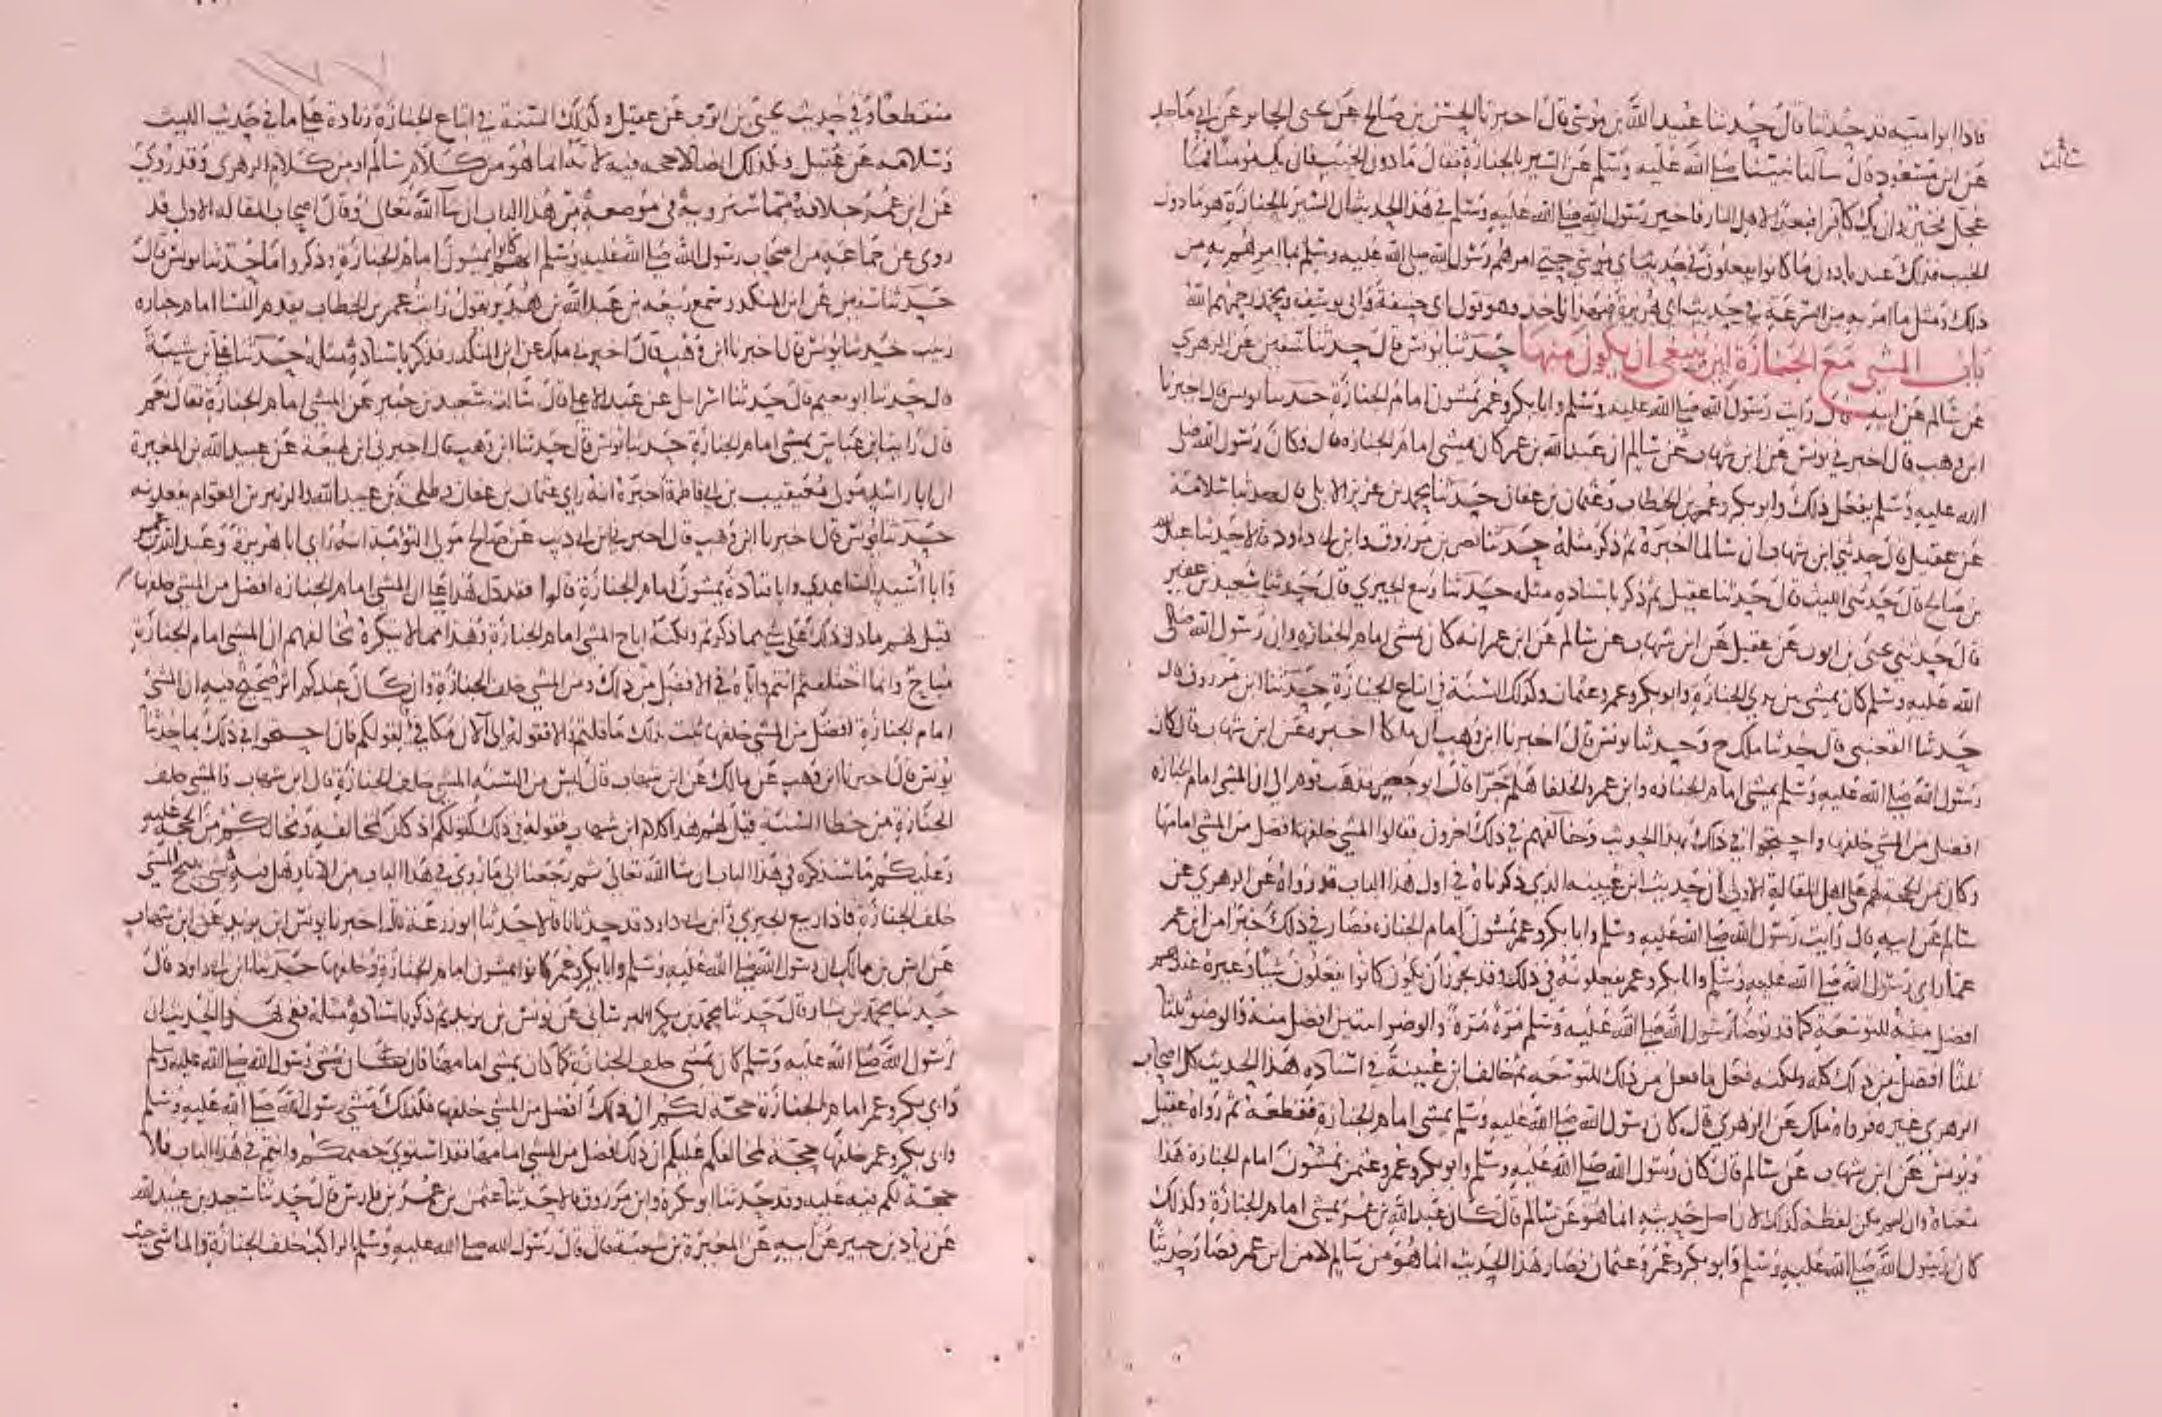 فاذا ابو امية قد حدثنا قال حدثنا عبيد الله بن موسى قال اخبرنا الحسن بن صالح عن يحيى الجابر عن ابي ماجد
ثالث
عن ابن مسعود قال سألنا نبينا صلى الله عليه وسلم عن السير بالجنازة فقال ما دون الخبب فان يك مؤمنا فما
عجل فخير وان يك كافرا فبعدا لاهل النار فاخبر رسول الله صلى الله عليه وسلم في هذا الحديث ان السير بالجنازة هو ما دون
الخبب فذلك عندنا دون ما كانوا يفعلون في حديث ابي موسى حتى امرهم رسول الله صلى الله عليه وسلم بما امرهم به من
ذلك ومثل ما امر به من السرعة في حديث ابي هريرة فبهذا ناخذ وهو قول ابي حنيفة وابي يوسف ومحمد رحمهم الله
باب المشي مع الجنازة اين ينبغي ان يكون منها حدثنا يونس قال حدثنا سفين عن الزهري
عن سالم عن ابيه قال رايت رسول الله صلى الله عليه وسلم وابا بكر وعمر يمشون امام الجنازة حدثنا يونس قال اخبرنا
ابن وهب قال اخبرني يونس عن ابن شهاب عن سالم ان عبد الله بن عمر كان يمشي امام الجنازة قال وكان رسول الله صلى
الله عليه وسلم يفعل ذلك وابو بكر وعمر بن الخطاب وعثمان بن عفان حدثنا محمد بن عزيز الايلي قال حدثنا سلامة
عن عقيل قال حدثني ابن شهاب ان سالما اخبره ثم ذكر مثله حدثنا نصر بن مرزوق وابن ابي داود قالا حدثنا عبد الله
بن صالح قال حدثني الليث قال حدثنا عقيل ثم ذكر باسناده مثله حدثنا ربيع الجيزي قال حدثنا سعيد بن عفير
قال حدثني يحيى بن ايوب عن عقيل عن ابن شهاب عن سالم عن ابن عمر انه كان يمشي امام الجنازة وان رسول الله صلى
الله عليه وسلم كان يمشي بين يدي الجنازة وابو بكر وعمر وعثمان وكذلك السنة في اتباع الجنازة حدثنا ابن مرزوق قال
حدثنا القعنبي قال حدثنا ملك ح وحدثنا يونس قال اخبرنا ابن وهب ان ملكا اخبره عن ابن شهاب قال كان
رسول الله صلى الله عليه وسلم يمشي امام الجنازة وابن عمر والخلفا هلم جرا قال ابو جعفر فذهب قوم الى ان المشي امام الجنازة
افضل من المشي خلفها واحتجوا في ذلك بهذا الحديث وخالفهم في ذلك اخرون فقالوا المشي خلفها افضل من المشي امامها
وكان من الحجة لهم على اهل المقالة الاولى ان حديث ابن عيينه الذي ذكرناه في اول هذا الباب قد رواه عن الزهري عن
سالم عن ابيه قال رايت رسول الله صلى الله عليه وسلم وابا بكر وعمر يمشون امام الجنازة فصار في ذلك خبرا من ابن عمر
عما راى رسول الله صلى الله عليه وسلم وابا بكر وعمر يفعلونه في ذلك وقد يجوز ان يكون كانوا يفعلون شيا وغيره عندهم
افضل منه للتوسعة كما قد توضا رسول الله صلى الله عليه وسلم مرة مرة والوضو اثنتين افضل منه والوضو ثلثا
ثلثا افضل من ذلك كله ولكنه فعل ما فعل من ذلك للتوسعة ثم خالف ابن عيينة في اسناده هذا الحديث كل اصحاب
الزهري غيره فرواه ملك عن الزهري قال كان رسول الله صلى الله عليه وسلم يمشي امام الجنازة فقطعه ثم رواه عقيل
ويونس عن ابن شهاب عن سالم قال كان رسول الله صلى الله عليه وسلم وابو بكر وعمر وعثمن يمشون امام الجنازة هذا
معناه وان لم يكن لفظه كذلك لان اصل حديثه انما هو عن سالم قال كان عبد الله بن عمر يمشي امام الجنازة وكذلك
كان رسول الله صلى الله عليه وسلم وابو بكر وعمر وعثمان فصار هذا الحديث انما هو من سالم لا من ابن عمر فصار حديثا
منقطعا وفي حديث يحيى بن ايوب عن عقيل وكذلك السنة في اتباع الجنازة زيادة على ما في حديث الليث
وسلامه عن عقيل فكذلك ايضا لا حجه فيه لانه انما هو من كلام سالم او من كلام الزهري وقد روي
عن ابن عمر خلافه مما سنرويه في موضعه من هذا الباب ان شا الله تعالى وقال اصحاب المقاله الاولى قد
روي عن جماعة من اصحاب رسول الله صلى الله عليه وسلم انهم كانوا يمشون امام الجنازة وذكروا ما حدثنا يونس قال
حدثنا سفين عن ابن المنكدر سمع ربيعه بن عبد الله بن هدير يقول رايت عمر بن الخطاب يقدم الناس امام جنازه
زينب حدثنا يونس قال اخبرنا ابن وهب قال اخبرني ملك عن ابن المنكدر فذكر باسناده مثله حدثنا علي بن شيبة
قال حدثنا ابو نعيم قال حدثنا اسرائيل عن عبد الاعلى قال سالت سعيد بن جبير عن المشي امام الجنازة فقال نعم
قال راينا ابن عباس يمشي امام الجنازة حدثنا يونس قال حدثنا ابن وهب قال اخبرني ابن لهيعة عن عبيد الله بن المغيرة
ان ابا راشد مولى معيقيب بن ابي فاطمة اخبره انه راى عثمان بن عفان وطلحة بن عبيد الله والزبير بن العوام يفعلونه
حدثنا يونس قال اخبرنا ابن وهب قال اخبرني ابن ابي ذيب عن صالح مولى التوامة انه راى ابا هريرة وعبد الله بن عمر
وابا اسيد الساعدي وابا قتادة يمشون امام الجنازة قالوا فقد دل هذا على ان المشي امام الجنازه افضل من المشي خلفها
قيل لهم ما دل ذلك على شي مما ذكرتم ولكنه اباح المشي امام الجنازة وهذا مما لا ينكره مخالفهم ان المشي امام الجنازة
مباح وانما اختلفتم انتم واياه في الافضل من ذلك ومن المشي خلف الجنازة وان كان عندكم اثر صحيح فيه ان المشي
امام الجنازة افضل من المشي خلفها ثبت بذلك ما قلتم والا فقوله الى الان مكافي لقولكم فان احتجوا في ذلك بما حدثنا
يونس قال اخبرنا ابن وهب عن مالك عن ابن شهاب قال ليس من السنه المشي خلف الجنازة قال ابن شهاب والمشي خلف
الجنازة من خطا السنة قيل لهم هذا كلام ابن شهاب فقوله في ذلك كقولكم اذ كان لمخالفه ومخالفكم من الحجة عليه
وعليكم ما سنذكره في هذا الباب ان شا الله تعالى ثم رجعنا الى ما روي في هذا الباب من الاثار هل فيه شي يبيح المشي
خلف الجنازة فاذا ربيع الجيزي وابن ابي داود قد حدثانا قالا حدثنا ابو زرعة قال اخبرنا يونس بن يزيد عن ابن شهاب
عن انس بن مالك ان رسول الله صلى الله عليه وسلم وابا بكر وعمر كانوا يمشون امام الجنازة وخلفها حدثنا ابن ابي داود قال
حدثنا محمد بن بشار قال حدثنا محمد بن بكر البرساني عن يونس بن يزيد ثم ذكر باسناده مثله ففي هذا الحديث ان
رسول الله صلى الله عليه وسلم كان يمشي خلف الجنازة كما كان يمشي امامها فان كان مشي رسول الله صلى الله عليه وسلم
وابي بكر وعمر امام الجنازة حجة لكم ان ذلك افضل من المشي خلفها فكذلك مشي رسول الله صلى الله عليه وسلم
وابي بكر وعمر خلفها حجة لمخالفكم عليكم ان ذلك افضل من المشي امامها فقد استوى خصمكم وانتم في هذا الباب فلا
حجة لكم فيه عليه وقد حدثنا ابو بكرة وابن مرزوق قالا حدثنا عثمن بن عمر بن فارس قال حدثنا سعيد بن عبيد الله
عن زياد بن جبير عن ابيه عن المغيرة بن شعبة قال قال رسول الله صلى الله عليه وسلم الراكب خلف الجنازة والماشي حيث